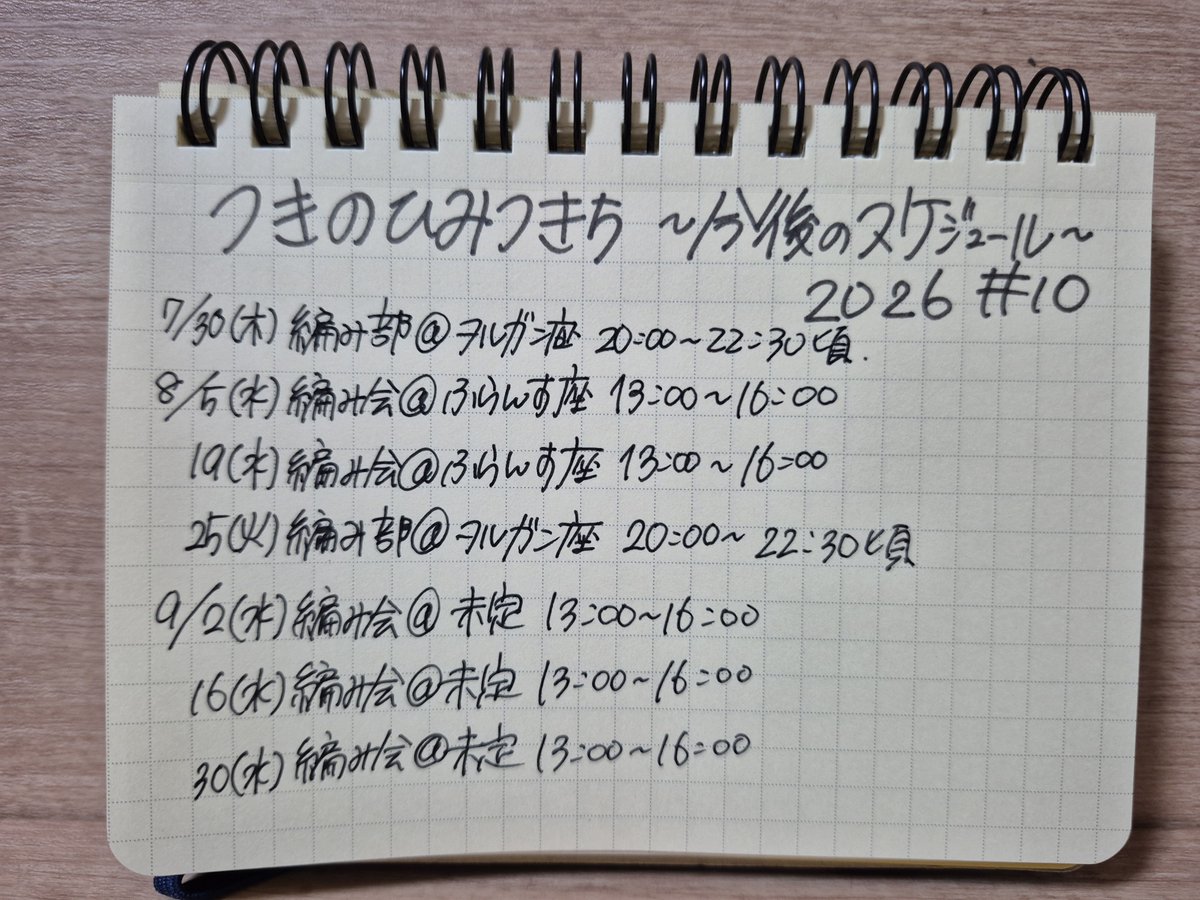 つきのひみつきち ～今後のスケジュール～
2026 #10
7/30(木) 編み部@ヲルガン座 20:00～22:30頃.
8/5(水) 編み会@ふらんす座 13:00～16:00
19(水) 編み会@ふらんす座 13:00～16:00
25(火) 編み部@ヲルガン座 20:00～22:30頃
9/2(水) 編み会@未定 13:00～16:00
16(水) 編み会@未定 13:00～16:00
30(水) 編み会@未定 13:00～16:00